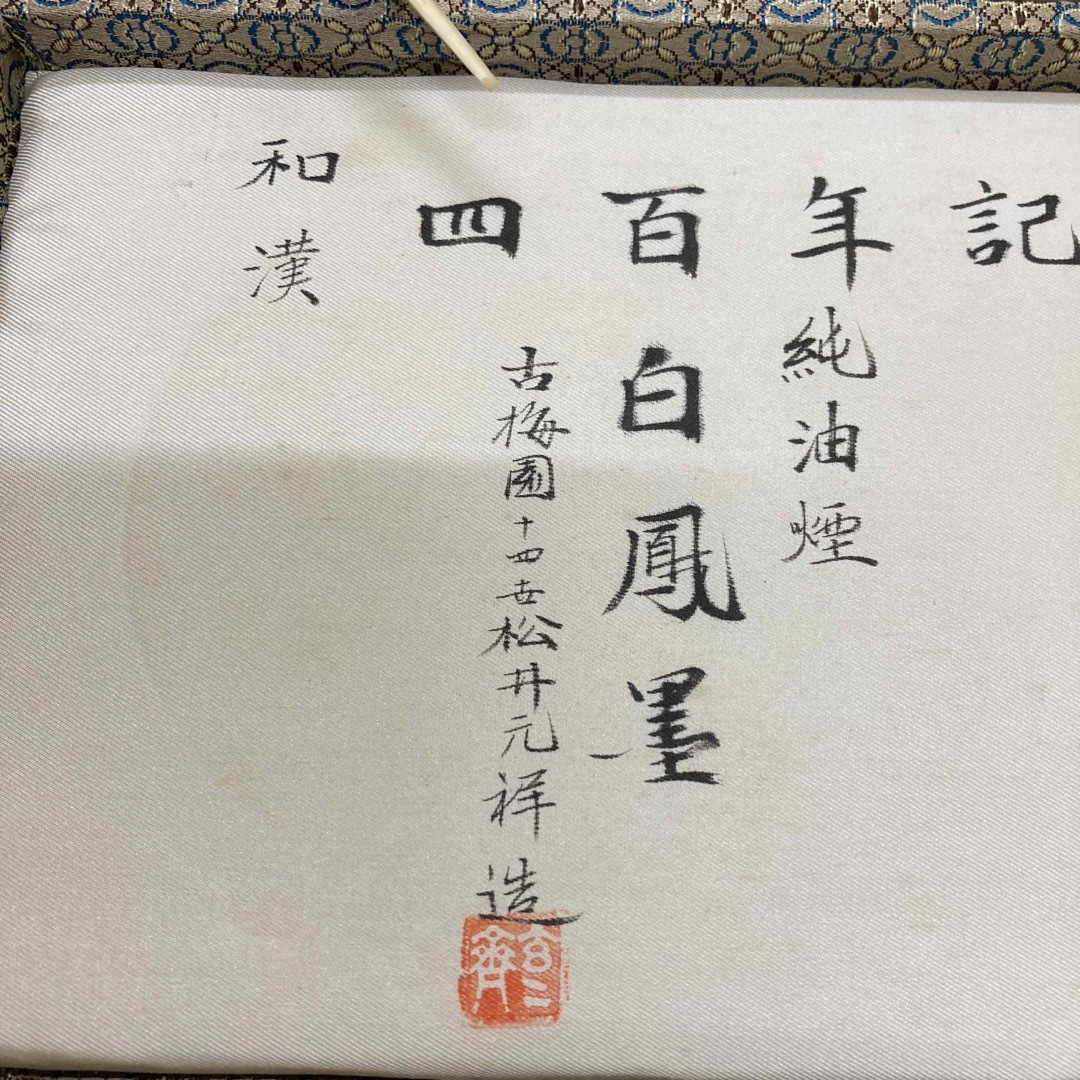 和漢
四百年記
純油煙
白鳳墨
古梅園十四世松井元祥造